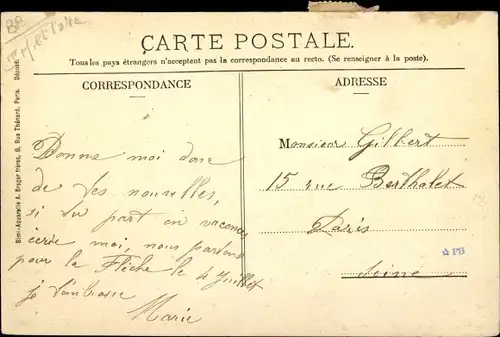 CARTE POSTALE.
Tous les pays étrangers n'acceptent pas la correspondance au recto. (Se renseigner à la poste).
CORRESPONDANCE
Donne moi donc
de tes nouvelles,
si tu part en vacances
écris moi, nous partons
pour la Flèche le 4 Juillet
je t'embrasse
Marie
ADRESSE
Monsieur Gilbert
15 rue Berthollet
Paris
Seine
PB
Simi-Aquarelle A. Breger frères, 9, Rue Thénard, Paris. Déposé.